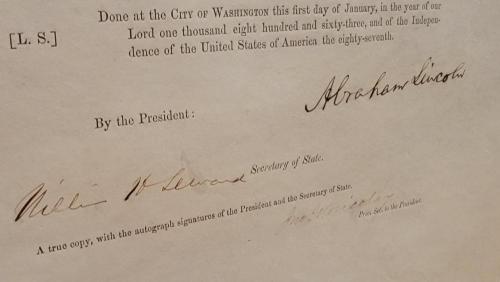 Done at the CITY OF WASHINGTON this first day of January, in the year of our
[L. S.] Lord one thousand eight hundred and sixty-three, and of the Indepen-
dence of the United States of America the eighty-seventh.
Abraham Lincoln
By the President:
William H Seward Secretary of State.
A true copy, with the autograph signatures of the President and the Secretary of State.
Jno. G. Nicolay
Priv. Sec. to the President.